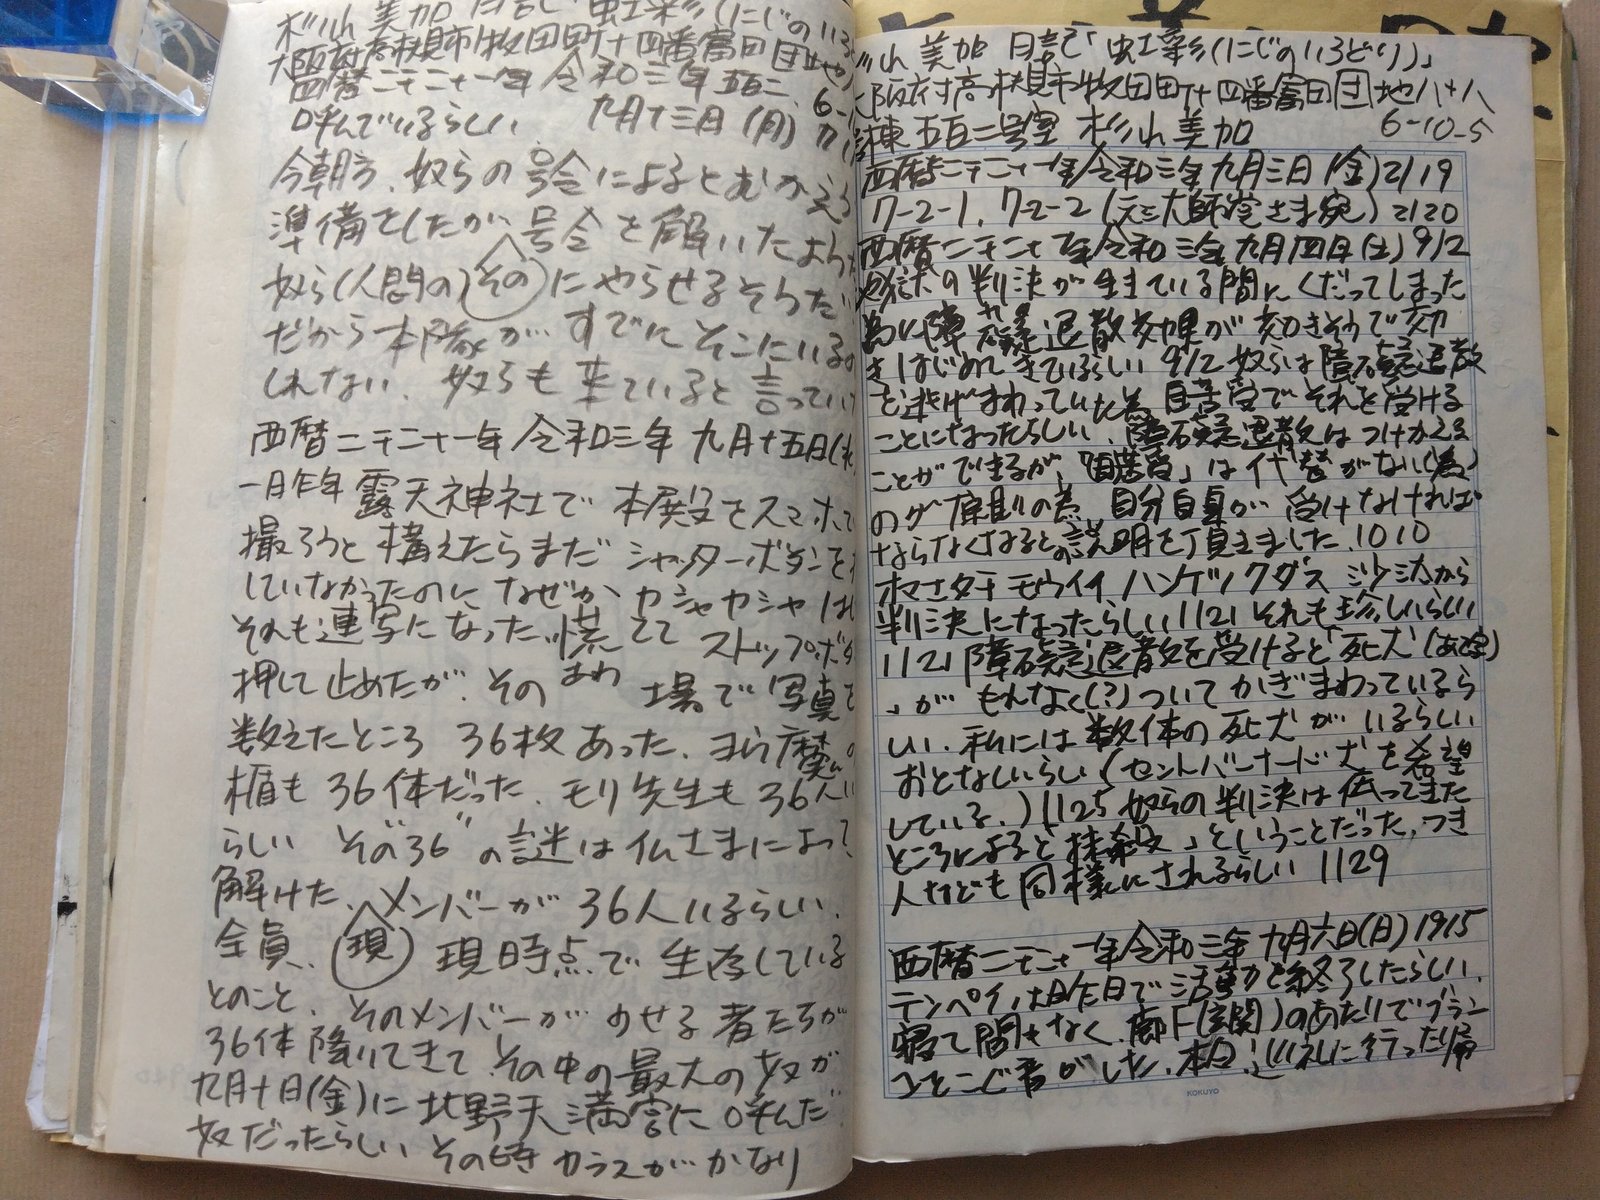 杉山 美加 日記「虹彩(にじのいろ
大阪府高槻市牧田町十四番富田団地
西暦二千二十一年 令和三年 五百二 6-
呼んでいるらしい 九月十三日(月)
今朝方、奴らの号令によるとむかえ
準備をしたが、号令を解いたよう
奴ら(人間の)そのにやらせるそうだ
だから本隊が、すでにそこにいる
しれない、奴らも来ていると言ってい
西暦二千二十一年 令和三年 九月十五日(水
一昨日 露天神社で 本殿をスマホで
撮ろうと構えたらまだシャッターボタンを
していなかったのに、なぜかカシャカシャ
それも連写になった、慌ててストップボタ
押して止めたが、その場で写真を
数えたところ 36枚あった、
楯も36体だった、モリ先生も36人
らしい その"36"の謎は仏さまによって
解けた、メンバーが36人いるらしい、
全員、現 現時点で生存している
とのこと、そのメンバーがのせる者たちが
36体降りてきて その中の最大の奴が
九月十日(金)に北野天満宮に呼んだ
奴だったらしい その時カラスがかなり
杉山 美加 日記「虹彩(にじのいろどり)」
大阪府高槻市牧田町十四番富田団地八十八
棟五百二号室 杉山美加 6-10-5
西暦二千二十一年令和三年九月三日(金)2119
7-2-1、7-2-2(元三大師堂さま宛)2120
西暦二千二十一年令和三年九月四日(土)912
地獄の判決が生きている間にくだってしまった
為に障礙退散効果が効きそうで効
きはじめてきているらしい 912 奴らは障碍退散
を逃げまわっていた為 自苦受でそれを受ける
ことになったらしい、障碍退散はつけかえる
ことができるが、「自苦受」は代替がない(為)
の為 自分自身が受けなければ
ならなくなるとの説明を頂きました、1010
オマエタチ モウイイ ハンケツクダス 沙汰から
判決になったらしい1121 それも珍しいらしい
1121 障碍退散を受けると「死犬(あて字)
」がもれなく(?)ついてかぎまわっているら
しい、私には数体の死犬がいるらしい
おとなしいらしい(セントバーナード犬を希望
している。)1125 奴らの判決は伝ってきた
ところによると「抹殺」ということだった、つき
人なども同様にされるらしい 1129
西暦二千二十一年令和三年九月六日(日)1915
テンペイ、一昨日で活動を終了したらしい、
寝て間もなく、廊下(玄関)のあたりでブラン
コをこぐ音がした、本日、巡礼に行った帰
KOKUYO